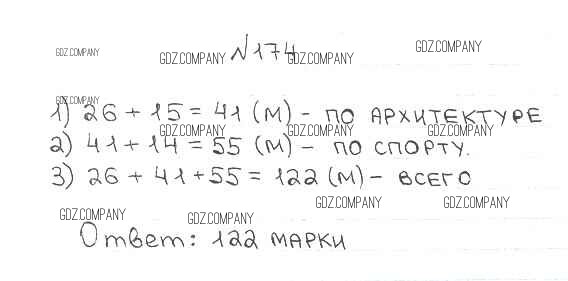 №174
1) 26 + 15 = 41 (м) - по архитектуре
2) 41 + 14 = 55 (м) - по спорту.
3) 26 + 41 + 55 = 122 (м) - всего
Ответ: 122 марки
GDZ.COMPANY
GDZ.COMPANY
GDZ.COMPANY
GDZ.COMPANY
GDZ.COMPANY
GDZ.COMPANY
GDZ.COMPANY
GDZ.COMPANY
GDZ.COMPANY
GDZ.COMPANY
GDZ.COMPANY
GDZ.COMPANY